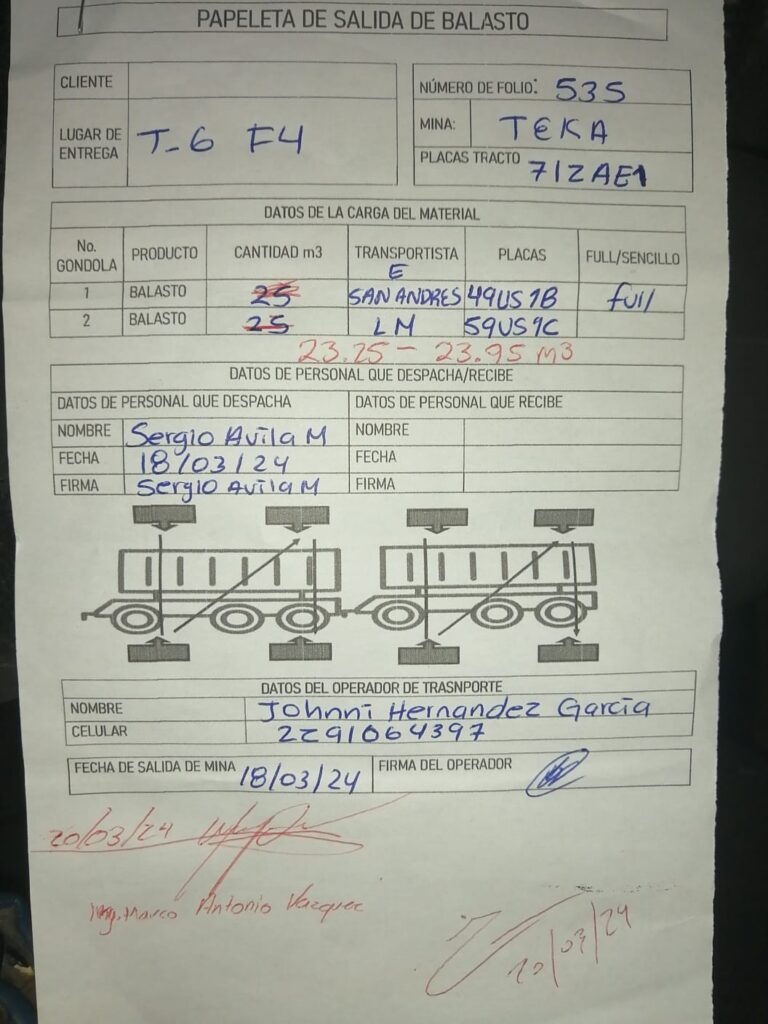 PAPELETA DE SALIDA DE BALASTO
CLIENTE
LUGAR DE ENTREGA T-6 F4
NÚMERO DE FOLIO: 535
MINA: TEKA
PLACAS TRACTO 712AE1
DATOS DE LA CARGA DEL MATERIAL
No. GONDOLA PRODUCTO CANTIDAD m3 TRANSPORTISTA PLACAS FULL/SENCILLO
1 BALASTO 25 E SAN ANDRES 49US1B full
2 BALASTO 25 LM 59US1C
23.25 - 23.95 m3
DATOS DE PERSONAL QUE DESPACHA/RECIBE
DATOS DE PERSONAL QUE DESPACHA DATOS DE PERSONAL QUE RECIBE
NOMBRE Sergio Avila M NOMBRE
FECHA 18/03/24 FECHA
FIRMA Sergio Avila M FIRMA
DATOS DEL OPERADOR DE TRASNPORTE
NOMBRE Johnni Hernandez Garcia
CELULAR 2291064397
FECHA DE SALIDA DE MINA 18/03/24 FIRMA DEL OPERADOR
20/03/24
Ing. Marco Antonio Vazquez
20/03/24